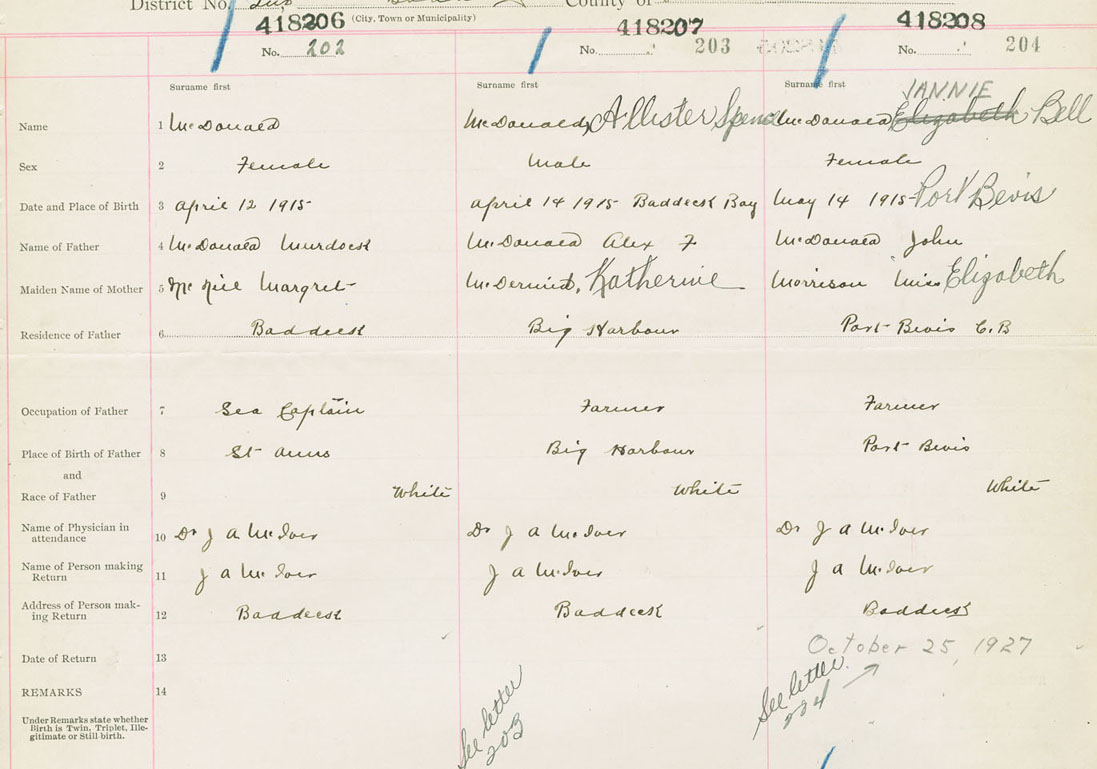 District No. County of
418206 (City, Town or Municipality) 418207 418208
No. 202 No. 203 No. 204
Surname first Surname first Surname first
JANNIE
Name 1 McDonald McDonald, Allister Spence McDonald Elizabeth Bell
Sex 2 Female Male Female
Date and Place of Birth 3 April 12 1915 April 14 1915 Baddeck Bay May 14 1915 Port Bevis
Name of Father 4 McDonald Murdock McDonald Alex F McDonald John
Maiden Name of Mother 5 McNeil Margret McDermid, Katherine Morrison Miss Elizabeth
Residence of Father 6 Baddeck Big Harbour Port Bevis C.B
Occupation of Father 7 Sea Captain Farmer Farmer
Place of Birth of Father 8 St Anns Big Harbour Port Bevis
and
Race of Father 9 White White White
Name of Physician in
attendance 10 Dr J A McIver Dr J A McIver Dr J A McIver
Name of Person making
Return 11 J A McIver J A McIver J A McIver
Address of Person mak-
ing Return 12 Baddeck Baddeck Baddeck
Date of Return 13 October 25, 1927
REMARKS 14
Under Remarks state whether
Birth is Twin, Triplet, Ille-
gitimate or Still-birth.
See letter
203
See letter
204